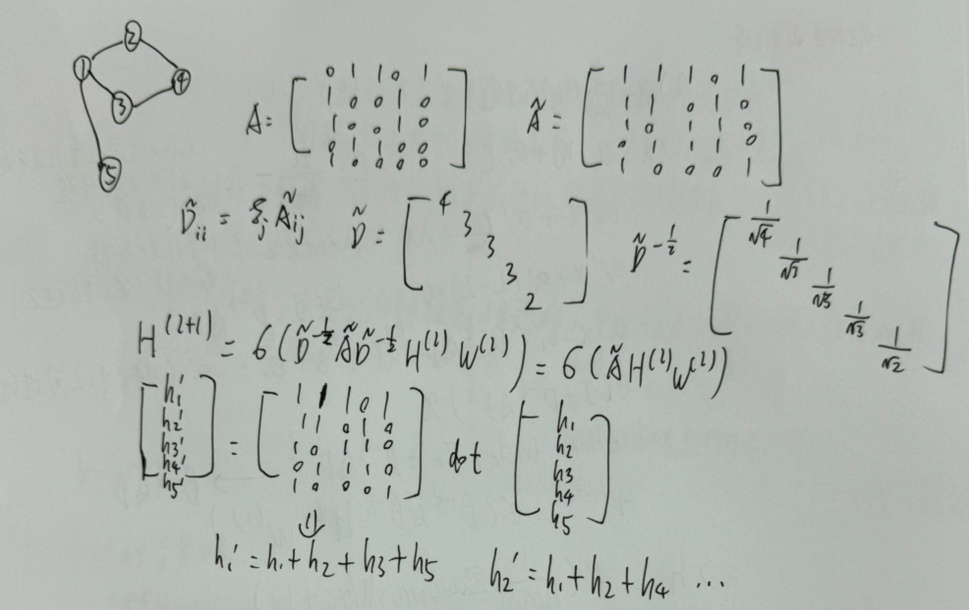 1 2 3 4 5
A = [ 0 1 1 0 1
1 0 0 1 0
1 0 0 1 0
0 1 1 0 0
1 0 0 0 0 ]
Ã = [ 1 1 1 0 1
1 1 0 1 0
1 0 1 1 0
0 1 1 1 0
1 0 0 0 1 ]
D̃ii = Σj Ãij
D̃ = [ 4 3 3 3 2 ]
D̃^-1/2 = [ 1/√4 1/√3 1/√3 1/√3 1/√2 ]
H^(l+1) = σ(D̃^-1/2 Ã D̃^-1/2 H^(l) W^(l)) = σ(Ã H^(l) W^(l))
[ h1' h2' h3' h4' h5' ] = [ 1 1 1 0 1
1 1 0 1 0
1 0 1 1 0
0 1 1 1 0
1 0 0 0 1 ] dot [ h1 h2 h3 h4 h5 ]
⇓
h1' = h1 + h2 + h3 + h5 h2' = h1 + h2 + h4 ...